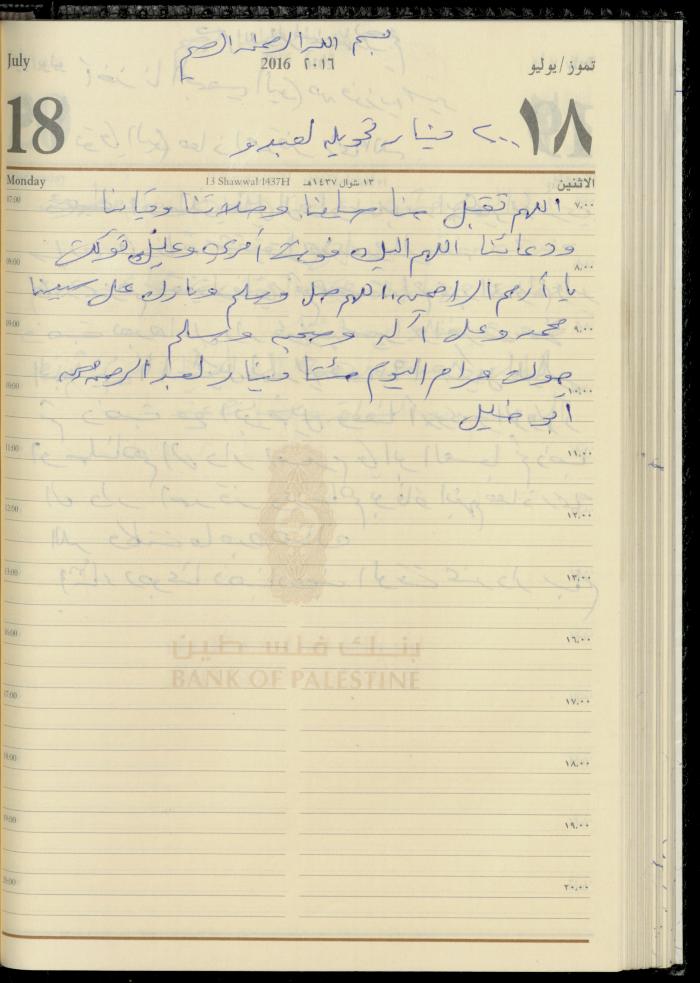 بسم الله الرحمن الرحيم
July
2016 ٢٠١٦
تموز/يوليو
18
١٨
٢٠٠ دينار تحويله لعبدو
Monday
13 Shawwal 1437H ١٣ شوال ١٤٣٧هـ
الاثنين
07:00 ٧,٠٠
اللهم تقبل منا صيامنا وصلاتنا وقيامنا
ودعائنا اللهم اليك فوضت أمري وعليك توكلت
08:00 ٨,٠٠
يا أرحم الراحمين اللهم صل وسلم وبارك على سيدنا
09:00 ٩,٠٠
محمد وعلى آله وصحبه وسلم
حولت مرام اليوم مئتا دينار لعبد الرحمن
10:00 ١٠,٠٠
أبو خليل
11:00 ١١,٠٠
12:00 ١٢,٠٠
13:00 ١٣,٠٠
16:00 ١٦,٠٠
بنك فلسطين
BANK OF PALESTINE
17:00 ١٧,٠٠
18:00 ١٨,٠٠
19:00 ١٩,٠٠
20:00 ٢٠,٠٠